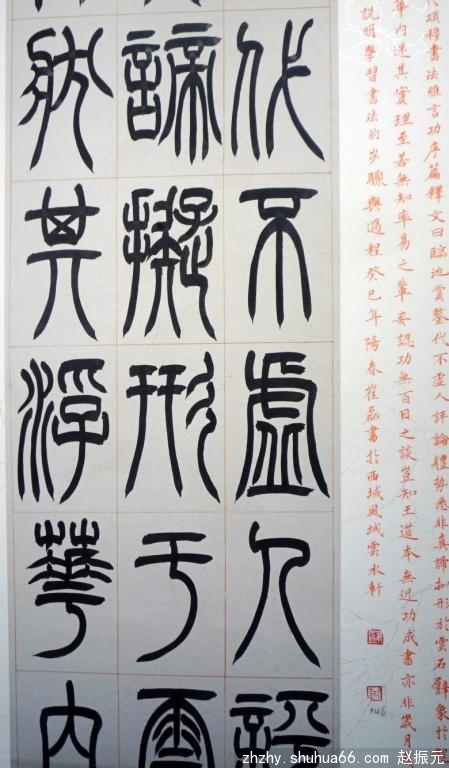 代項穆書法雅言功序篇釋文曰臨池賞鑒代不虛人評論體勢悉非真諦拟形於雲石譬象於
華内迷其實理至若無知率易之輩妄認功無百日之談豈知王道本無近功成書亦非歲月
說明學習書法的步驟與過程癸巳年陽春崔磊書於西域風城雲水軒
代不虛人評
諦擬形于雲
狀其浮華内
zhzhy.shuhua66.com 赵振元